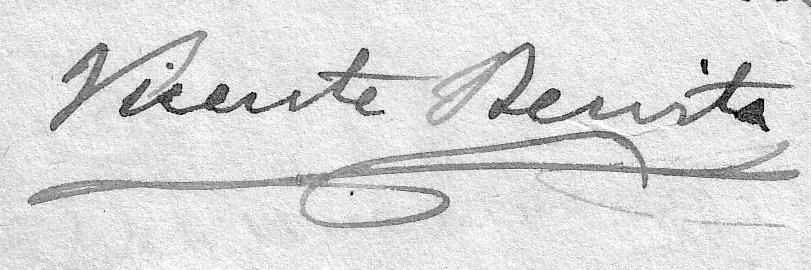 Vicente Benito